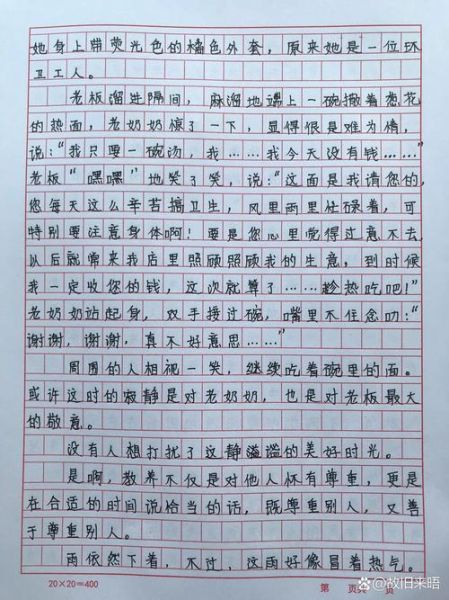 她身上带荧光色的橘色外套，原来她是一位环
卫工人。
老板溜进隔间，麻溜地递上一碗撒着葱花
的热面，老奶奶愣了一下，显得很是难为情，
说：“我只要一碗汤，我……我今天没有钱……”
老板“嘿嘿”地笑了笑，说：“这面是我请您的，
您每天这么辛苦搞卫生，风里雨里忙碌着，可
特别要注意身体啊！要是您心里觉得过意不去，
以后就常来我店里照顾照顾我的生意，到时候
我一定收您的钱，这次就算了……趁热吃吧！”
老奶奶站起身，双手接过碗，嘴里不住念叨：“
谢谢，谢谢，真不好意思……”
周围的人相视一笑，继续吃着碗里的面。
或许这时的寂静是对老奶奶，也是对老板最大
的敬意。
没有人想打扰了这静谧谧的美好时光。
是啊，教养不仅是对他人怀有尊重，更是
在合适的时间说恰当的话，既尊重别人，又善
于尊重别人。
雨依然下着，不过，这雨好像冒着热气。
20×20=400
第 页共 页
@故旧来晤